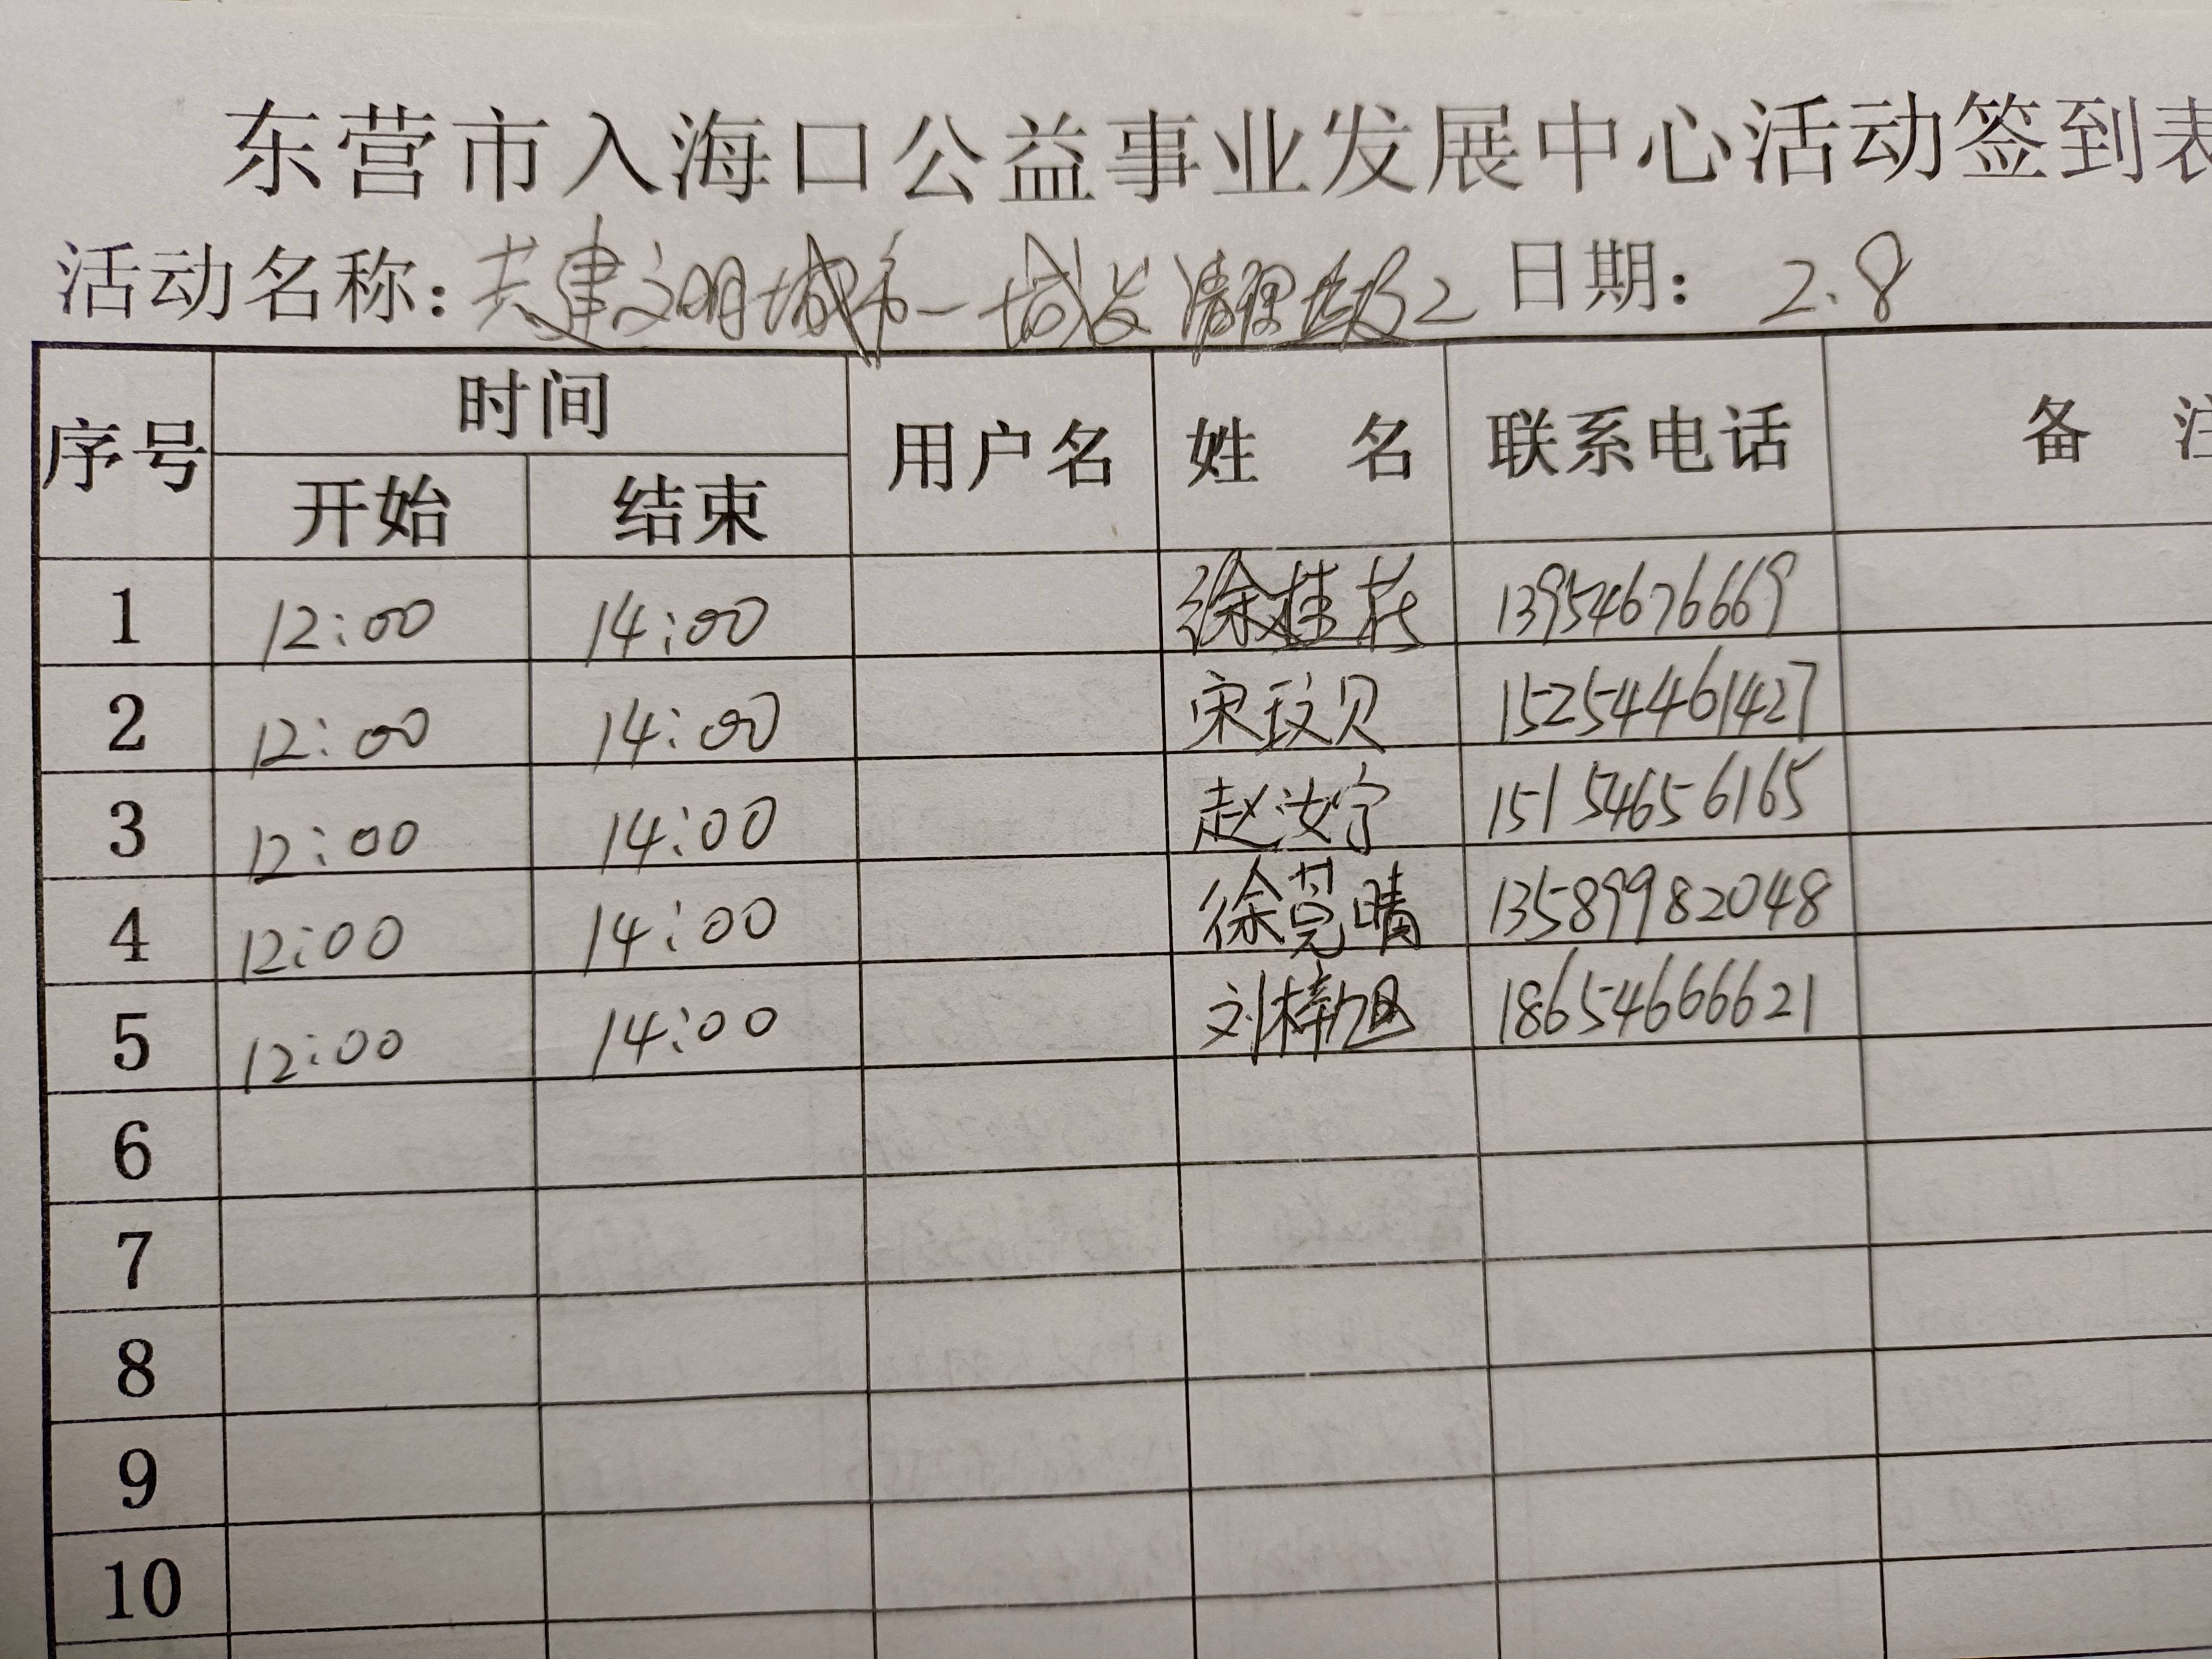 东营市入海口公益事业发展中心活动签到表
活动名称：共建文明城市一城发清理垃圾2 日期：2.8
序号 时间 用户名 姓 名 联系电话 备 注
开始 结束
1 12:00 14:00 徐桂花 13954676669
2 12:00 14:00 宋玟贝 15254461427
3 12:00 14:00 赵汝宁 15154656165
4 12:00 14:00 徐莞晴 13589982048
5 12:00 14:00 刘梓旭 18654666621
6
7
8
9
10